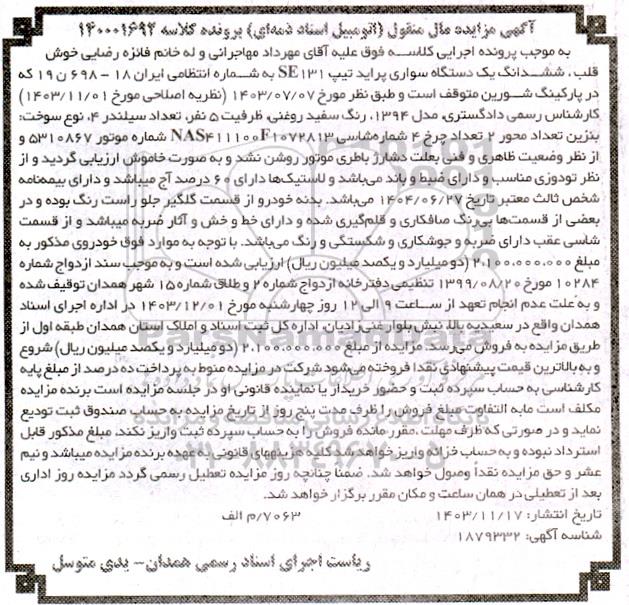 آگهی مزایده مال منقول (اتومبیل اسناد ذمه‌ای) پرونده کلاسه ۱۴۰۰۰۱۶۹۴
به موجب پرونده اجرایی کلاســه فوق علیه آقای مهرداد مهاجرانی و له خانم فائزه رضایی خوش
قلب، ششدانگ یک دستگاه سواری پراید تیپ SE۱۳۱ به شــماره انتظامی ایران ۱۸ - ۶۹۸ ن ۱۹ که
در پارکینگ شــورین متوقف است و طبق نظر مورخ ۱۴۰۳/۰۷/۰۷ (نظریه اصلاحی مورخ ۱۴۰۳/۱۱/۰۱)
کارشناس رسمی دادگستری، مدل ۱۳۹۴، رنگ سفید روغنی، ظرفیت ۵ نفر، تعداد سیلندر ۴، نوع سوخت:
بنزین تعداد محور ۲ تعداد چرخ ۴ شماره‌شاسی NAS۴۱۱۱۰۰F۱۰۷۲۸۱۳ شماره موتور ۵۳۱۰۸۶۷ و
از نظر وضعیت ظاهری و فنی بعلت دشارژ باطری موتور روشن نشد و به صورت خاموش ارزیابی گردید و از
نظر تودوزی مناسب و دارای ضبط و باند می‌باشد و لاستیک‌ها دارای ۶۰ درصد آج میباشد و دارای بیمه‌نامه
شخص ثالث معتبر تاریخ ۱۴۰۴/۰۶/۲۷ می‌باشد. بدنه خودرو از قسمت گلگیر جلو راست رنگ بوده و در
بعضی از قسمت‌ها بی‌رنگ صافکاری و قلم‌گیری شده و دارای خط و خش و آثار ضربه میباشد و از قسمت
شاسی عقب دارای ضربه و جوشکاری و شکستگی و رنگ می‌باشد. با توجه به موارد فوق خودروی مذکور به
مبلغ ۲.۱۰۰.۰۰۰.۰۰۰ (دو میلیارد و یکصد میلیون ریال) ارزیابی شده است و به موجب سند ازدواج شماره
۱۰۲۸۴ مورخ ۱۳۹۹/۰۸/۲۰ تنظیمی دفترخانه ازدواج شماره ۲ و طلاق شماره ۱۵ شهر همدان توقیف شده
و به علت عدم انجام تعهد از ســاعت ۹ الی ۱۲ روز چهارشنبه مورخ ۱۴۰۳/۱۲/۰۱ در اداره اجرای اسناد
همدان واقع در سعیدیه بالا، نبش بلوار غنی‌زادیان، اداره کل ثبت اسناد و املاک استان همدان طبقه اول از
طریق مزایده به فروش می‌رسد. مزایده از مبلغ ۲.۱۰۰.۰۰۰.۰۰۰ (دو میلیارد و یکصد میلیون ریال) شروع
و به بالاترین قیمت پیشنهادی نقدا فروخته می‌شود شرکت در مزایده منوط به پرداخت ده درصد از مبلغ پایه
کارشناسی به حساب سپرده ثبت و حضور خریدار یا نماینده قانونی او در جلسه مزایده است برنده مزایده
مکلف است مابه التفاوت مبلغ فروش را ظرف مدت پنج روز از تاریخ مزایده به حساب صندوق ثبت تودیع
نماید و در صورتی که ظرف مهلت مقرر، مانده فروش را به حساب سپرده ثبت واریز نکند، مبلغ مذکور قابل
استرداد نبوده و به حساب خزانه واریز خواهد شد کلیه هزینه‌های قانونی به عهده برنده مزایده میباشد و نیم
عشر و حق مزایده نقداً وصول خواهد شد. ضمناً چنانچه روز مزایده تعطیل رسمی گردد مزایده روز اداری
بعد از تعطیلی در همان ساعت و مکان مقرر برگزار خواهد شد.
تاریخ انتشار: ۱۴۰۳/۱۱/۱۷ ۷۰۶۳/م الف
شناسه آگهی: ۱۸۷۹۳۳۲
ریاست اجرای اسناد رسمی همدان- یدی متوسل